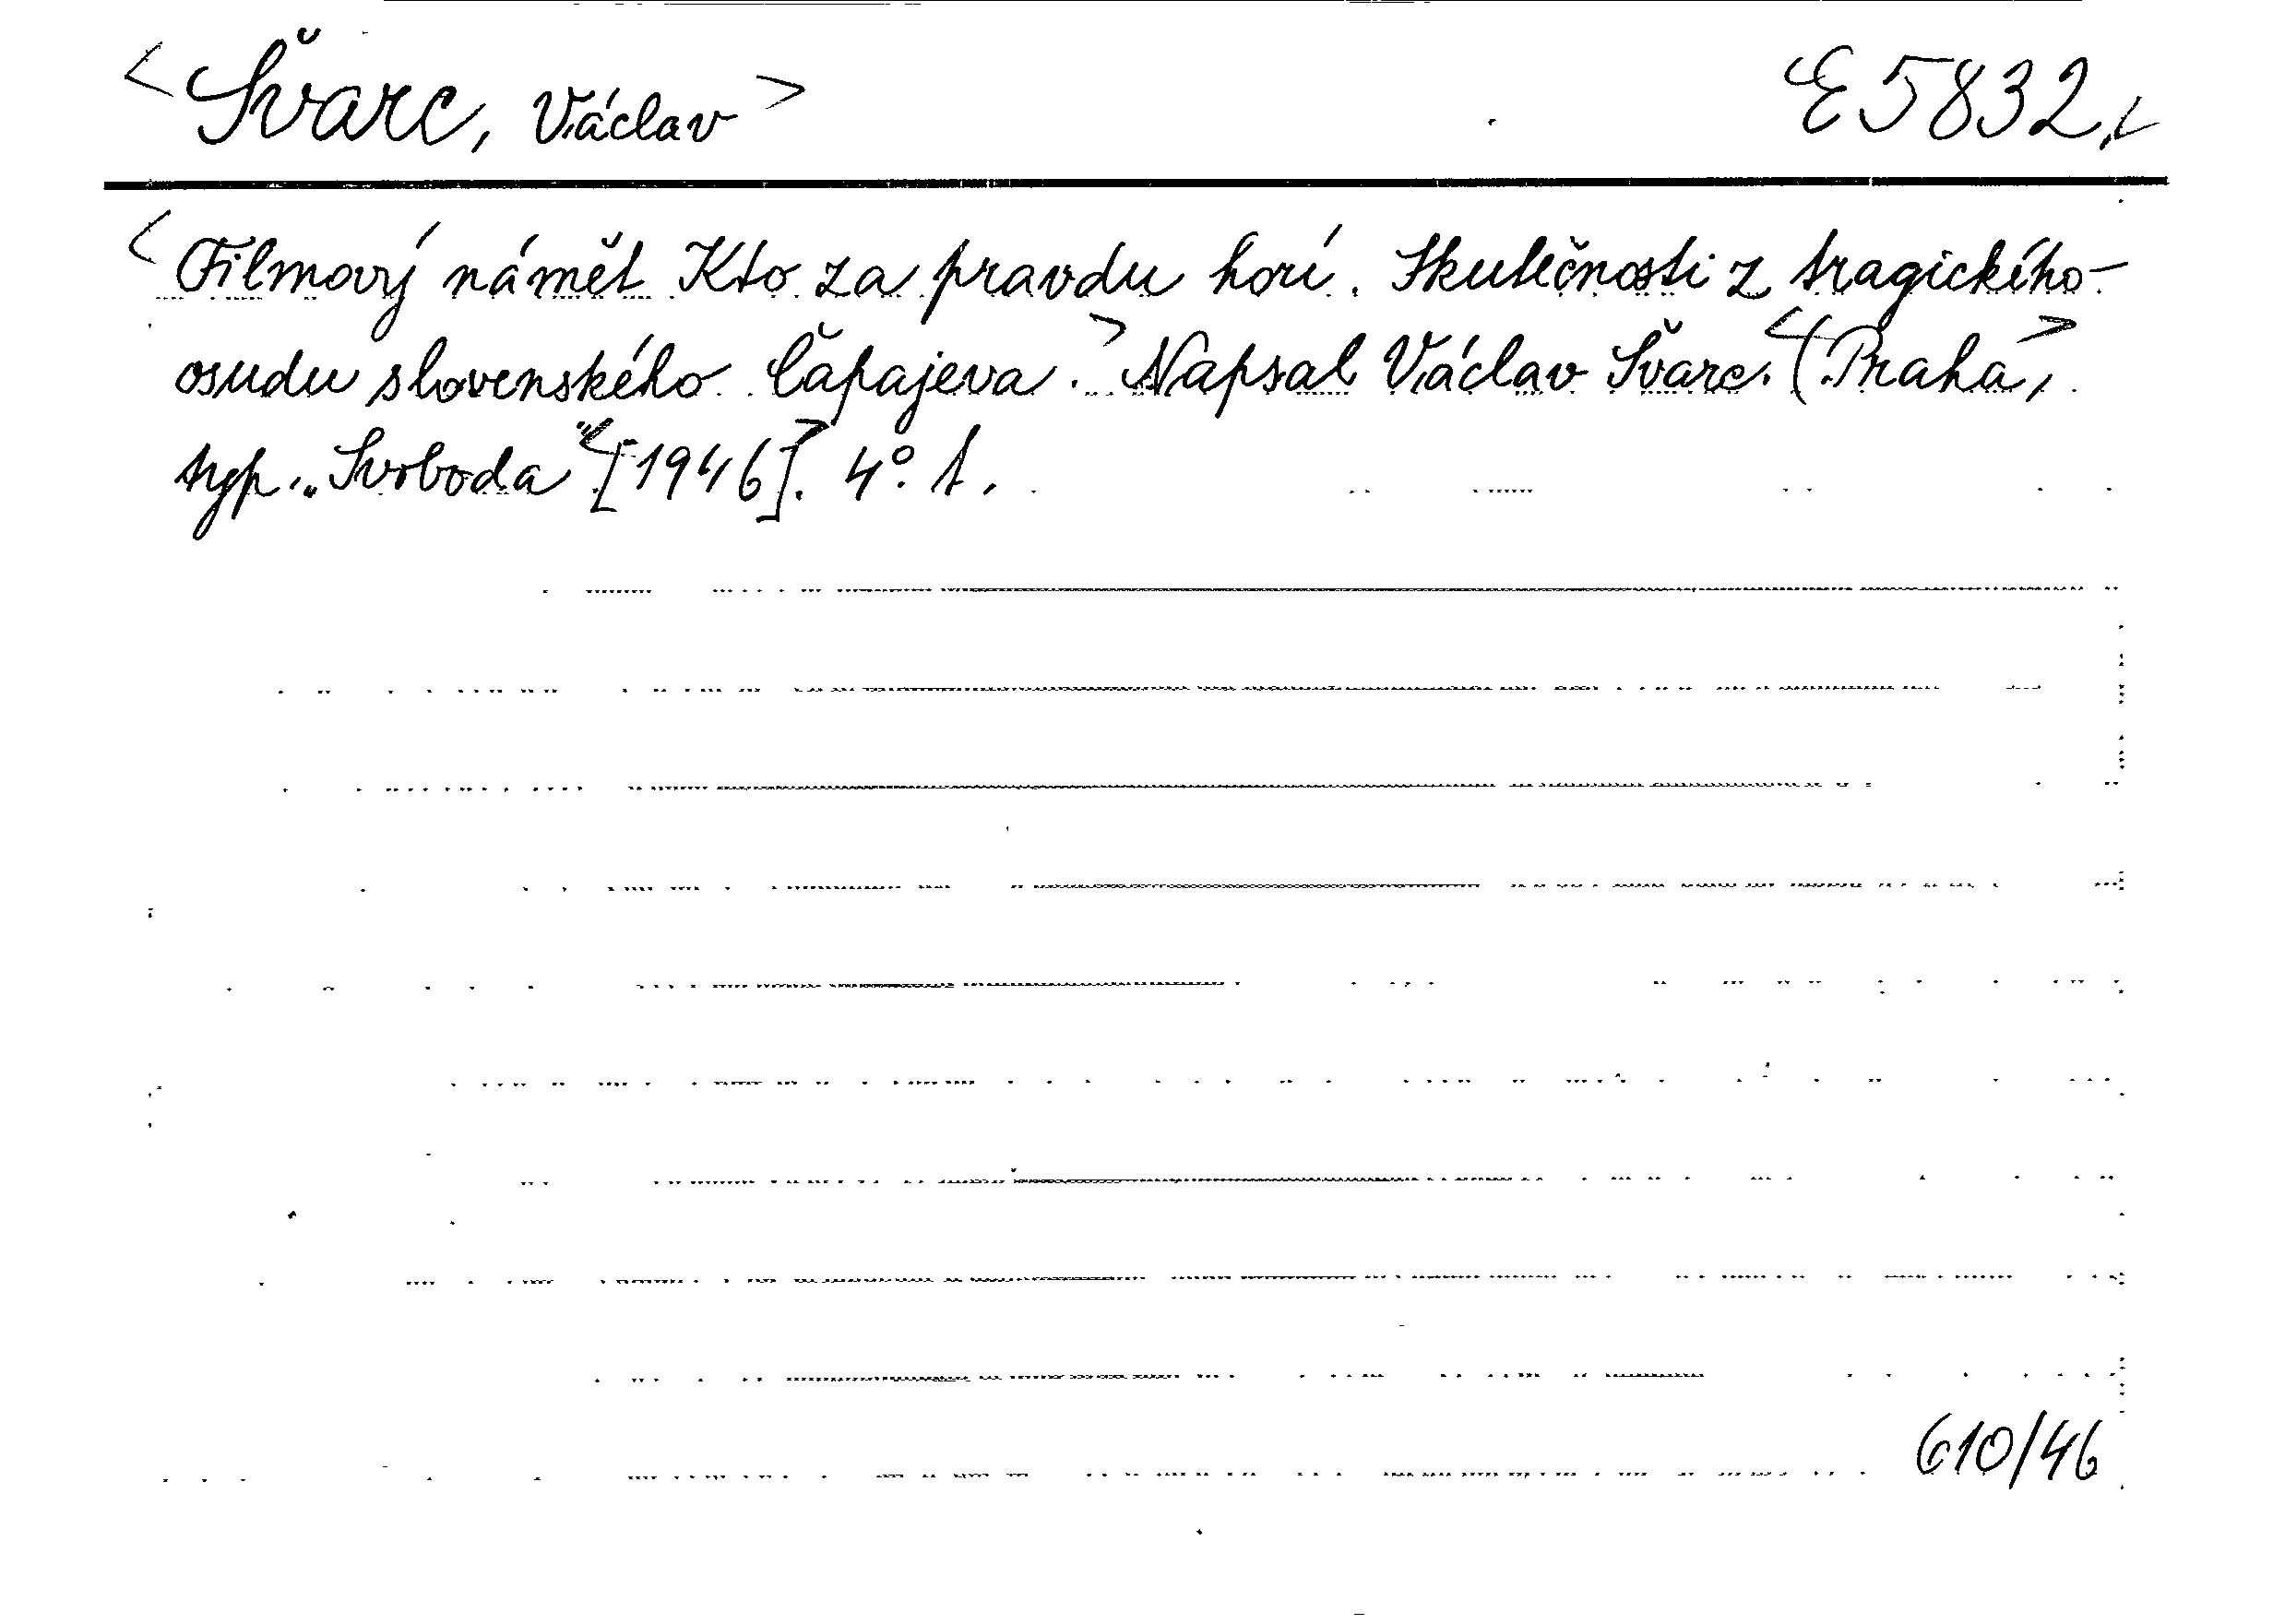 <Švarc, Václav> E 5832,
<Filmový námět Kto za pravdu horí. Skutečnosti z tragického
osudu slovenského Čapajeva.> Napsal Václav Švarc. <(Praha>,
typ. „Svoboda“ <[1946]>. 4°. 1.
610/46